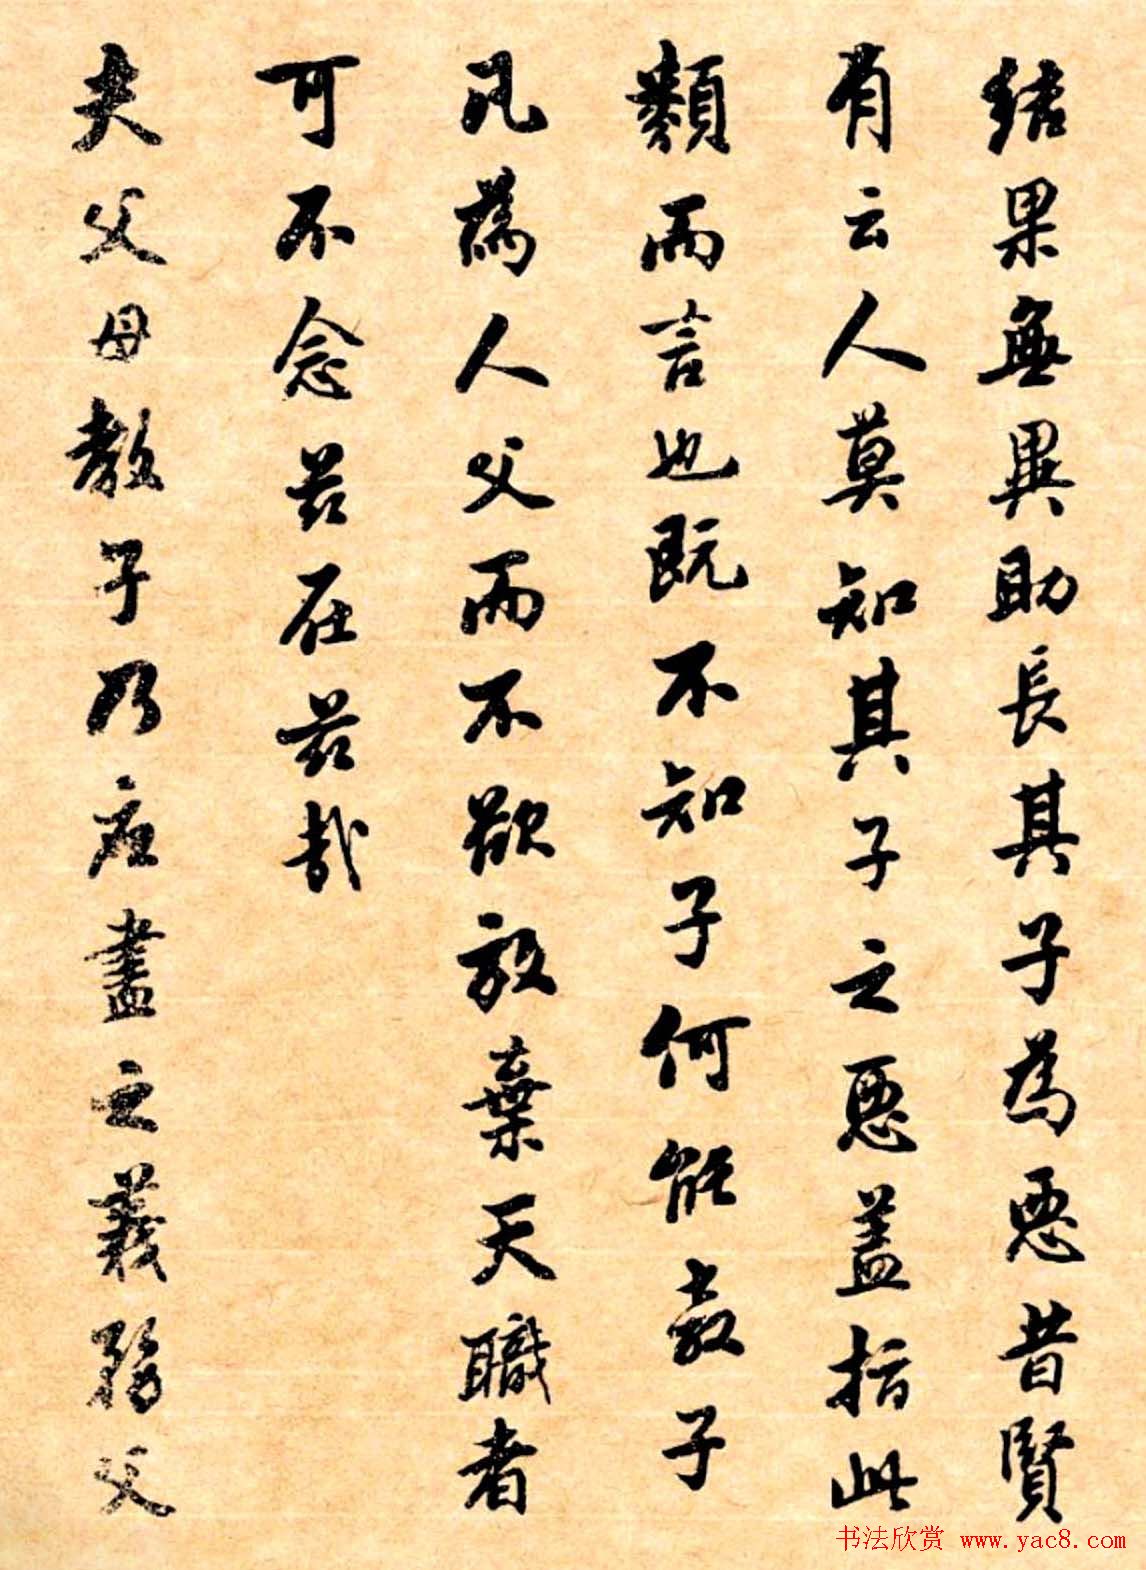 结果無異助長其子為惡昔賢
有云人莫知其子之惡蓋指此
類而言也既不知子何能教子
凡為人父而不欲放棄天職者
可不念茲在茲哉
夫父母教子乃應盡之義務父
书法欣赏 www.yac8.com